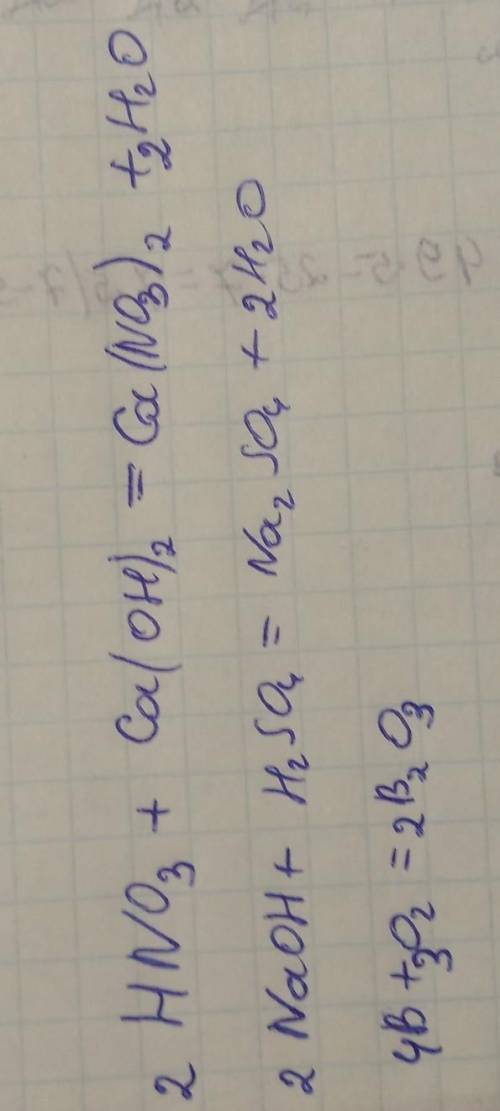 2 HNO₃ + Ca(OH)₂ = Ca(NO₃)₂ + 2H₂O
2 NaOH + H₂SO₄ = Na₂SO₄ + 2H₂O
4B + 3O₂ = 2B₂O₃